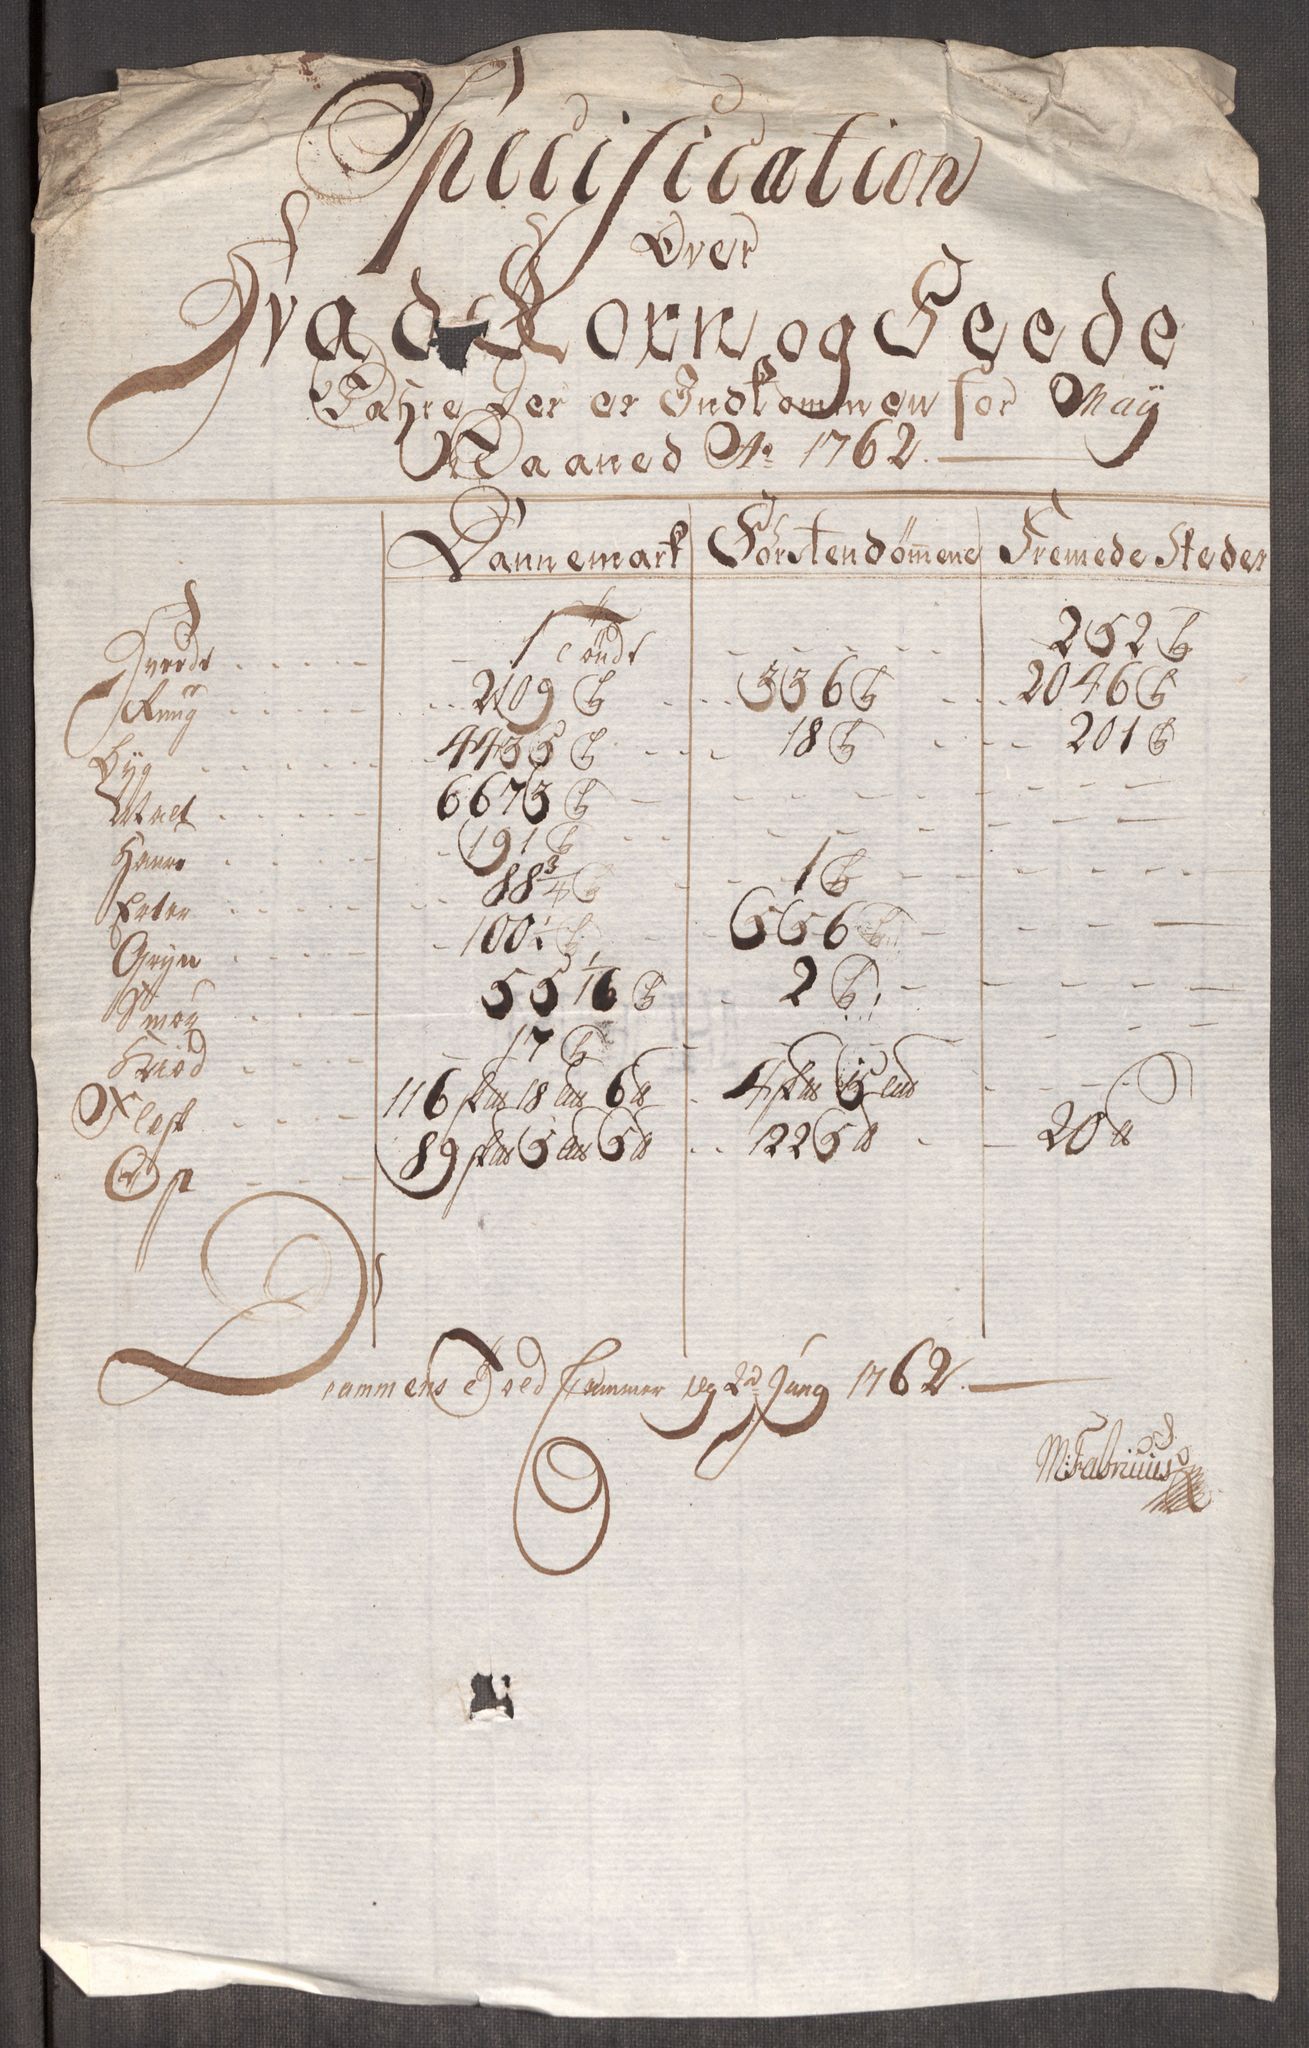 Specification
Over
Hvad Korn og Feede
Vahre Der er Indkommen for Maÿ
Maaned Ao 1762.
Dannemark Förstendömmene Fremede Steder
Hvede 1 Tönde 252 T
Rug 2109 T 336 T 2046 T
Byg 4435 T 18 T 201 T
Malt 6673 T
Havre 191 T
Erter 88 3/4 T 1 T
Gryn 100 1/4 T 656 T
Smör 55 1/16 T 2 T
Kiöd 17 T
Flesk 116 sk℔ 18 l℔ 6 ℔ 4 sk℔ 15 l℔
Ost 89 sk℔ 5 l℔ 5 ℔ 1225 ℔ 20 ℔
Drammens Told Cammer 2d Juny 1762.
M: Fabricius